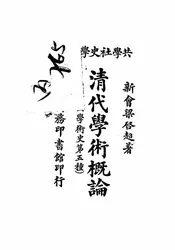 共學社史學
新會梁啓超著
清代學術概論
【學術史第五種】
務印書館印行